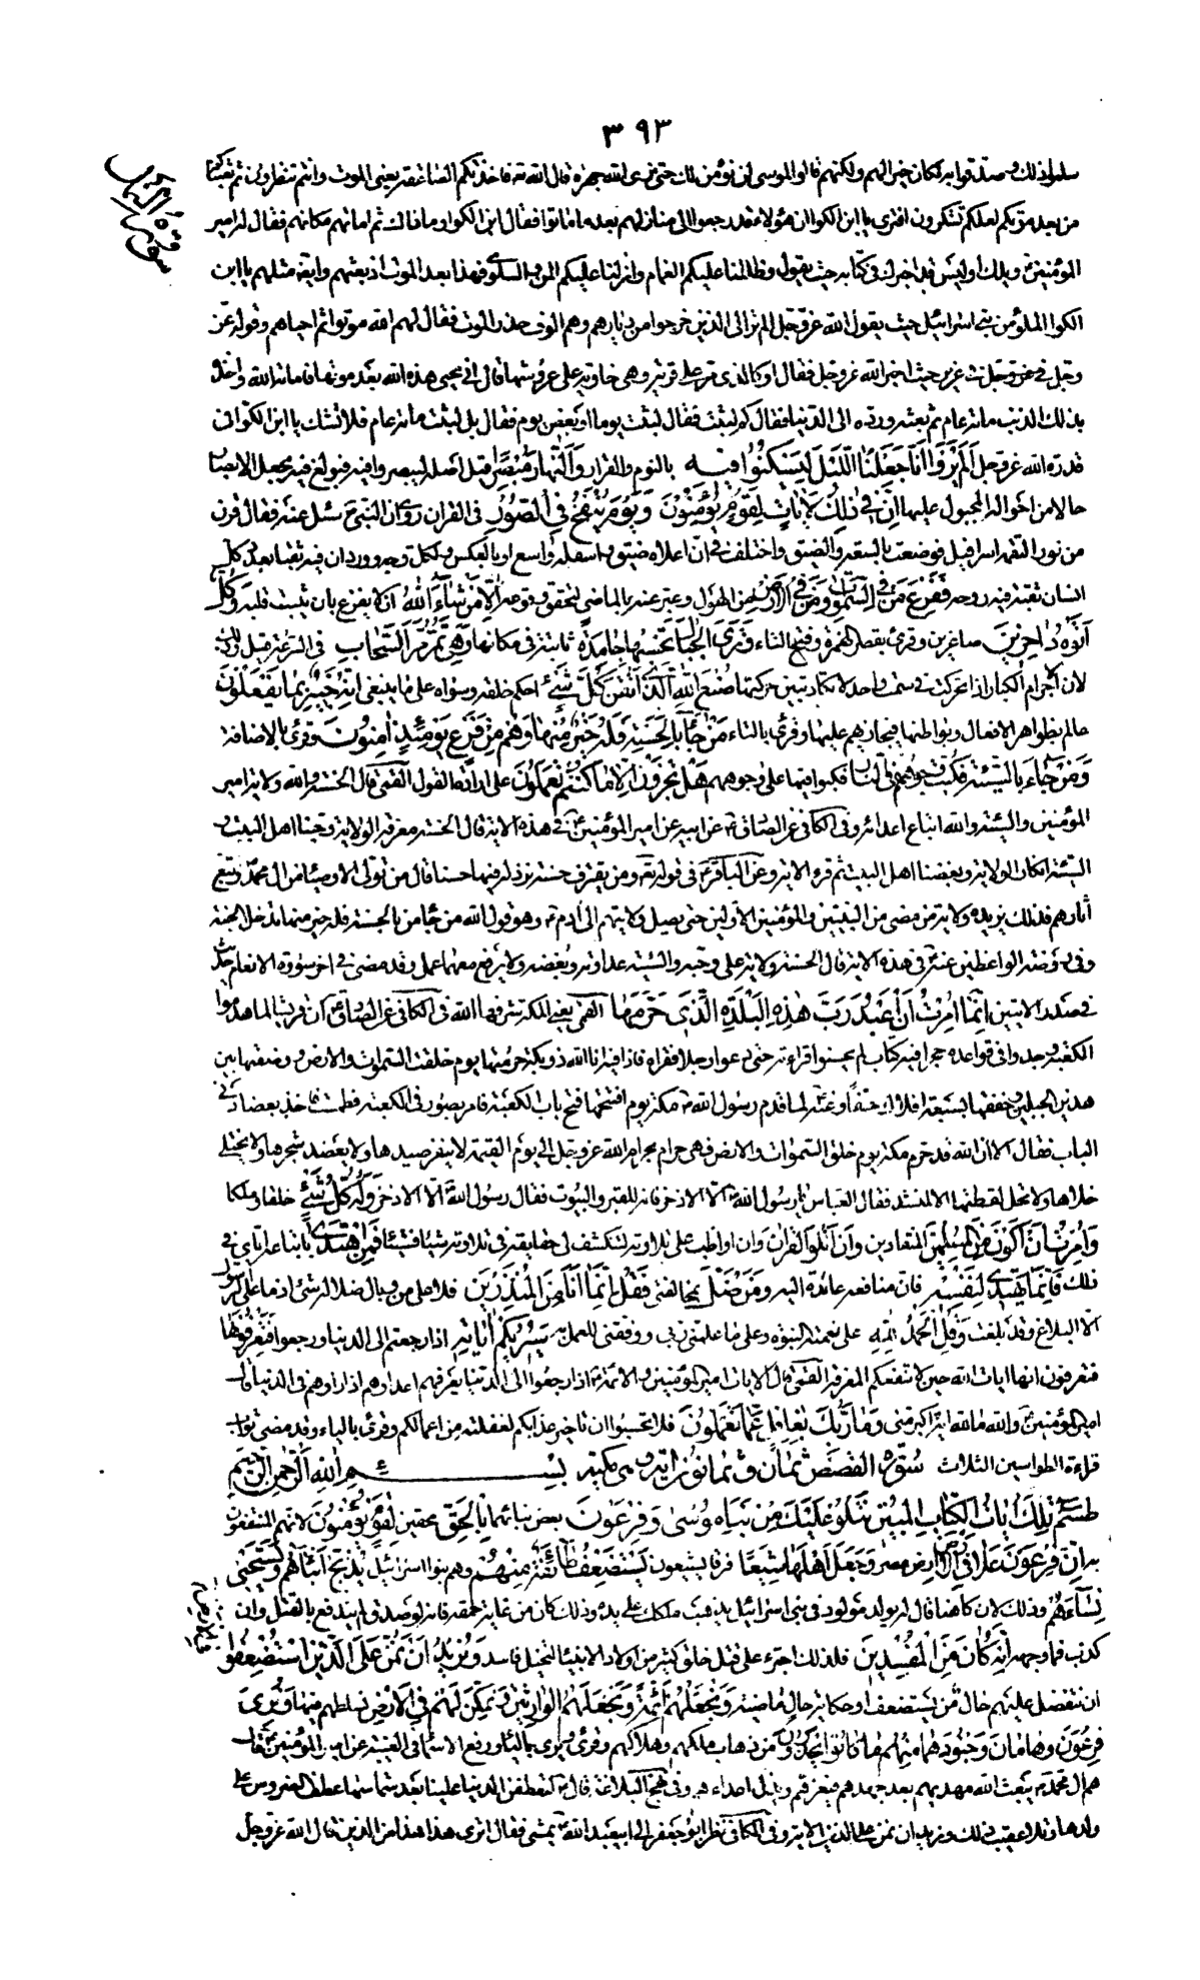 ٣٩٣
سلموا ذلك وصدقوا به لكان خيرا لهم ولكنهم قالوا لموسى لن نؤمن لك حتى نرى الله جهرة قال الله فاخذتكم الصاعقة يعنى الموت وانتم تنظرون ثم بعثناكم
من بعد موتكم لعلكم تشكرون افترى يا ابن الكوا ان هؤلاء قد رجعوا الى منازلهم بعد ما ماتوا فقال ابن الكوا وما ذاك ثم اماتهم مكانهم فقال له امير
المؤمنين ويلك اوليس قد اخبرك فى كتابه حيث يقول وظللنا عليكم الغمام وانزلنا عليكم المن والسلوى فهذا بعد الموت اذ بعثهم وايضا مثلهم يا ابن
الكوا الملأ من بنى اسرائيل حيث يقول الله عز وجل الم تر الى الذين خرجوا من ديارهم وهم الوف حذر الموت فقال لهم الله موتوا ثم احياهم وقوله عز
وجل فى عزير حيث اخبر الله عز وجل فقال او كالذى مر على قرية وهى خاوية على عروشها قال انى يحيى هذه الله بعد موتها فاماته الله واخذه
بذلك الذنب مائة عام ثم بعثه ورده الى الدنيا فقال كم لبثت فقال لبثت يوما او بعض يوم فقال بل لبثت مائة عام فلا تشك يا ابن الكوا فى
قدرة الله عز وجل الم يروا انا جعلنا الليل ليسكنوا فيه بالنوم والقرار والنهار مبصرا قيل اصله ليبصروا فيه فبولغ فيه بجعل الابصار
حالا من احواله المجبول عليها ان فى ذلك لايات لقوم يؤمنون ويوم ينفخ فى الصور فى القران روى ان النبى سئل عنه فقال قرن
من نور التقمه اسرافيل فوصف بالسعة والضيق واختلف فى ان اعلاه ضيق واسفله واسع او بالعكس ولكل وجه وورد ان فيه ثقبا بعدد كل
انسان ثقبة فيه روحه ففزع من فى السموات ومن فى الارض من الهول وعبر عنه بالماضى لتحقق وقوعه الا من شاء الله ان لا يفزع بان يثبت قلبه وكل
اتوه داخرين صاغرين وقرئ بقصر الهمزة وفتح التاء وترى الجبال تحسبها جامدة ثابتة فى مكانها وهى تمر مر السحاب فى السرعة قيل وذلك
لان الاجرام الكبار اذا تحركت فى سمت واحد لا تكاد تتبين حركتها صنع الله الذى اتقن كل شئ احكم خلقه وسواه على ما ينبغى انه خبير بما يفعلون
عالم بظواهر الافعال وبواطنها فيجازيهم عليها وقرئ بالتاء من جاء بالحسنة فله خير منها وهم من فزع يومئذ امنون وقرئ بالاضافة
ومن جاء بالسيئة فكبت وجوههم فى النار فكبوا فيها على وجوههم هل تجزون الا ما كنتم تعملون على ارادة القول القمى قال الحسنة والله ولاية امير
المؤمنين والسيئة والله اتباع اعدائه وفى الكافى عن الصادق عن ابيه عن امير المؤمنين فى هذه الاية قال الحسنة معرفة الولاية وحبنا اهل البيت و
السيئة انكار الولاية وبغضنا اهل البيت ثم قرء الاية وعن الباقر فى قوله تعالى ومن يقترف حسنة نزد له فيها حسنا قال من تولى الاوصياء من ال محمد وتبع
اثارهم فذلك يزيده ولاية من مضى من النبيين والمؤمنين الاولين حتى يصل ولايتهم الى ادم وهو قول الله من جاء بالحسنة فله خير منها تدخله الجنة
وفى روضة الواعظين عنه فى هذه الاية قال الحسنة ولاية على وحبه والسيئة عداوته وبغضه ولا يرفع معهما عمل وقد مضى فى اخر سورة الانعام حديث
فى صدد الايتين انما امرت ان اعبد رب هذه البلدة الذى حرمها القمى يعنى المكة شرفها الله فى الكافى عن الصادق ان قريشا لما هدموا
الكعبة وجدوا فى قواعده حجرا فيه كتاب لم يحسنوا قراءته حتى دعوا رجلا فقراه فاذا فيه انا الله ذو بكة حرمتها يوم خلقت السموات والارض ووضعتها بين
هذين الجبلين وحففتها بسبعة املاك حفا وعنه لما قدم رسول الله مكة يوم افتتحها فتح باب الكعبة فامر بصور فى الكعبة فطمست فاخذ بعضادتى
الباب فقال الا ان الله قد حرم مكة يوم خلق السموات والارض فهى حرام بحرام الله عز وجل الى يوم القيمة لا ينفر صيدها ولا يعضد شجرها ولا يختلى
خلاها ولا تحل لقطتها الا لمنشد فقال العباس يا رسول الله الا الاذخر فانه للقبر والبيوت فقال رسول الله الا الاذخر وله كل شئ خلقا وملكا
وامرت ان اكون من المسلمين المنقادين وان اتلوا القران وان اواظب على تلاوته لتنكشف لى حقايقه فى تلاوته شيئا فشيئا فمن اهتدى باتباعه اياى فى
ذلك فانما يهتدى لنفسه فان منافعه عائدة اليه ومن ضل بمخالفتى فقل انما انا من المنذرين فلا على من وبال ضلاله شئ اذ ما على الرسول
الا البلاغ وقد بلغت وقل الحمد لله على نعمة النبوة وعلى ما علمنى ربى ووفقنى للعمل به سيريكم اياته اذا رجعتم الى الدنيا ورجعوا فتعرفونها
فتعرفون انها ايات الله حين لا تنفعكم المعرفة القمى قال الايات امير المؤمنين والائمة اذا رجعوا الى الدنيا يعرفهم اعداؤهم اذا راوهم فى الدنيا قال
امير المؤمنين والله ما لله اية اكبر منى وما ربك بغافل عما تعملون فلا تحسبوا ان تاخير عذابكم لغفلته من اعمالكم وقرئ بالياء وقد مضى ثواب
قراءة الطواسين الثلاث سورة القصص ثمان وثمانون اية وهى مكية بسم الله الرحمن الرحيم
طسم تلك ايات الكتاب المبين نتلو عليك من نبأ موسى وفرعون بعض نبائهما بالحق محقين لقوم يؤمنون لانهم المنتفعون
به ان فرعون علا فى الارض ارض مصر وجعل اهلها شيعا فرقا يشيعونه يستضعف طائفة منهم وهم بنوا اسرائيل يذبح ابناءهم ويستحيى
نساءهم وذلك لان كاهنا قال له يولد مولود فى بنى اسرائيل يذهب ملكك على يده وذلك كان من غاية حمقه فانه لو صدق لم يندفع بالقتل وان
كذب فما وجهه انه كان من المفسدين فلذلك اجترء على قتل خلق كثير من اولاد الانبياء لتخيل فاسد ونريد ان نمن على الذين استضعفوا
ان نتفضل عليهم حال من يستضعف او حكاية حال ماضية ونجعلهم ائمة ونجعلهم الوارثين ونمكن لهم فى الارض نسلطهم فيها ونرى
فرعون وهامان وجنودهما منهم ما كانوا يحذرون من ذهاب ملكهم وهلاكهم وقرئ ويرى بالياء ورفع الاسماء فى الغيبة عن امير المؤمنين قال
هم ال محمد يبعث الله مهديهم بعد جهدهم فيعزهم ويذل اعداءهم وفى نهج البلاغة قال لتعطفن الدنيا علينا بعد شماسها عطف الضروس على
ولدها وتلا عقيب ذلك ونريد ان نمن على الذين الاية وفى الكافى نظر ابو جعفر الى ابى عبد الله يمشى فقال اترى هذا هذا من الذين قال الله عز وجل